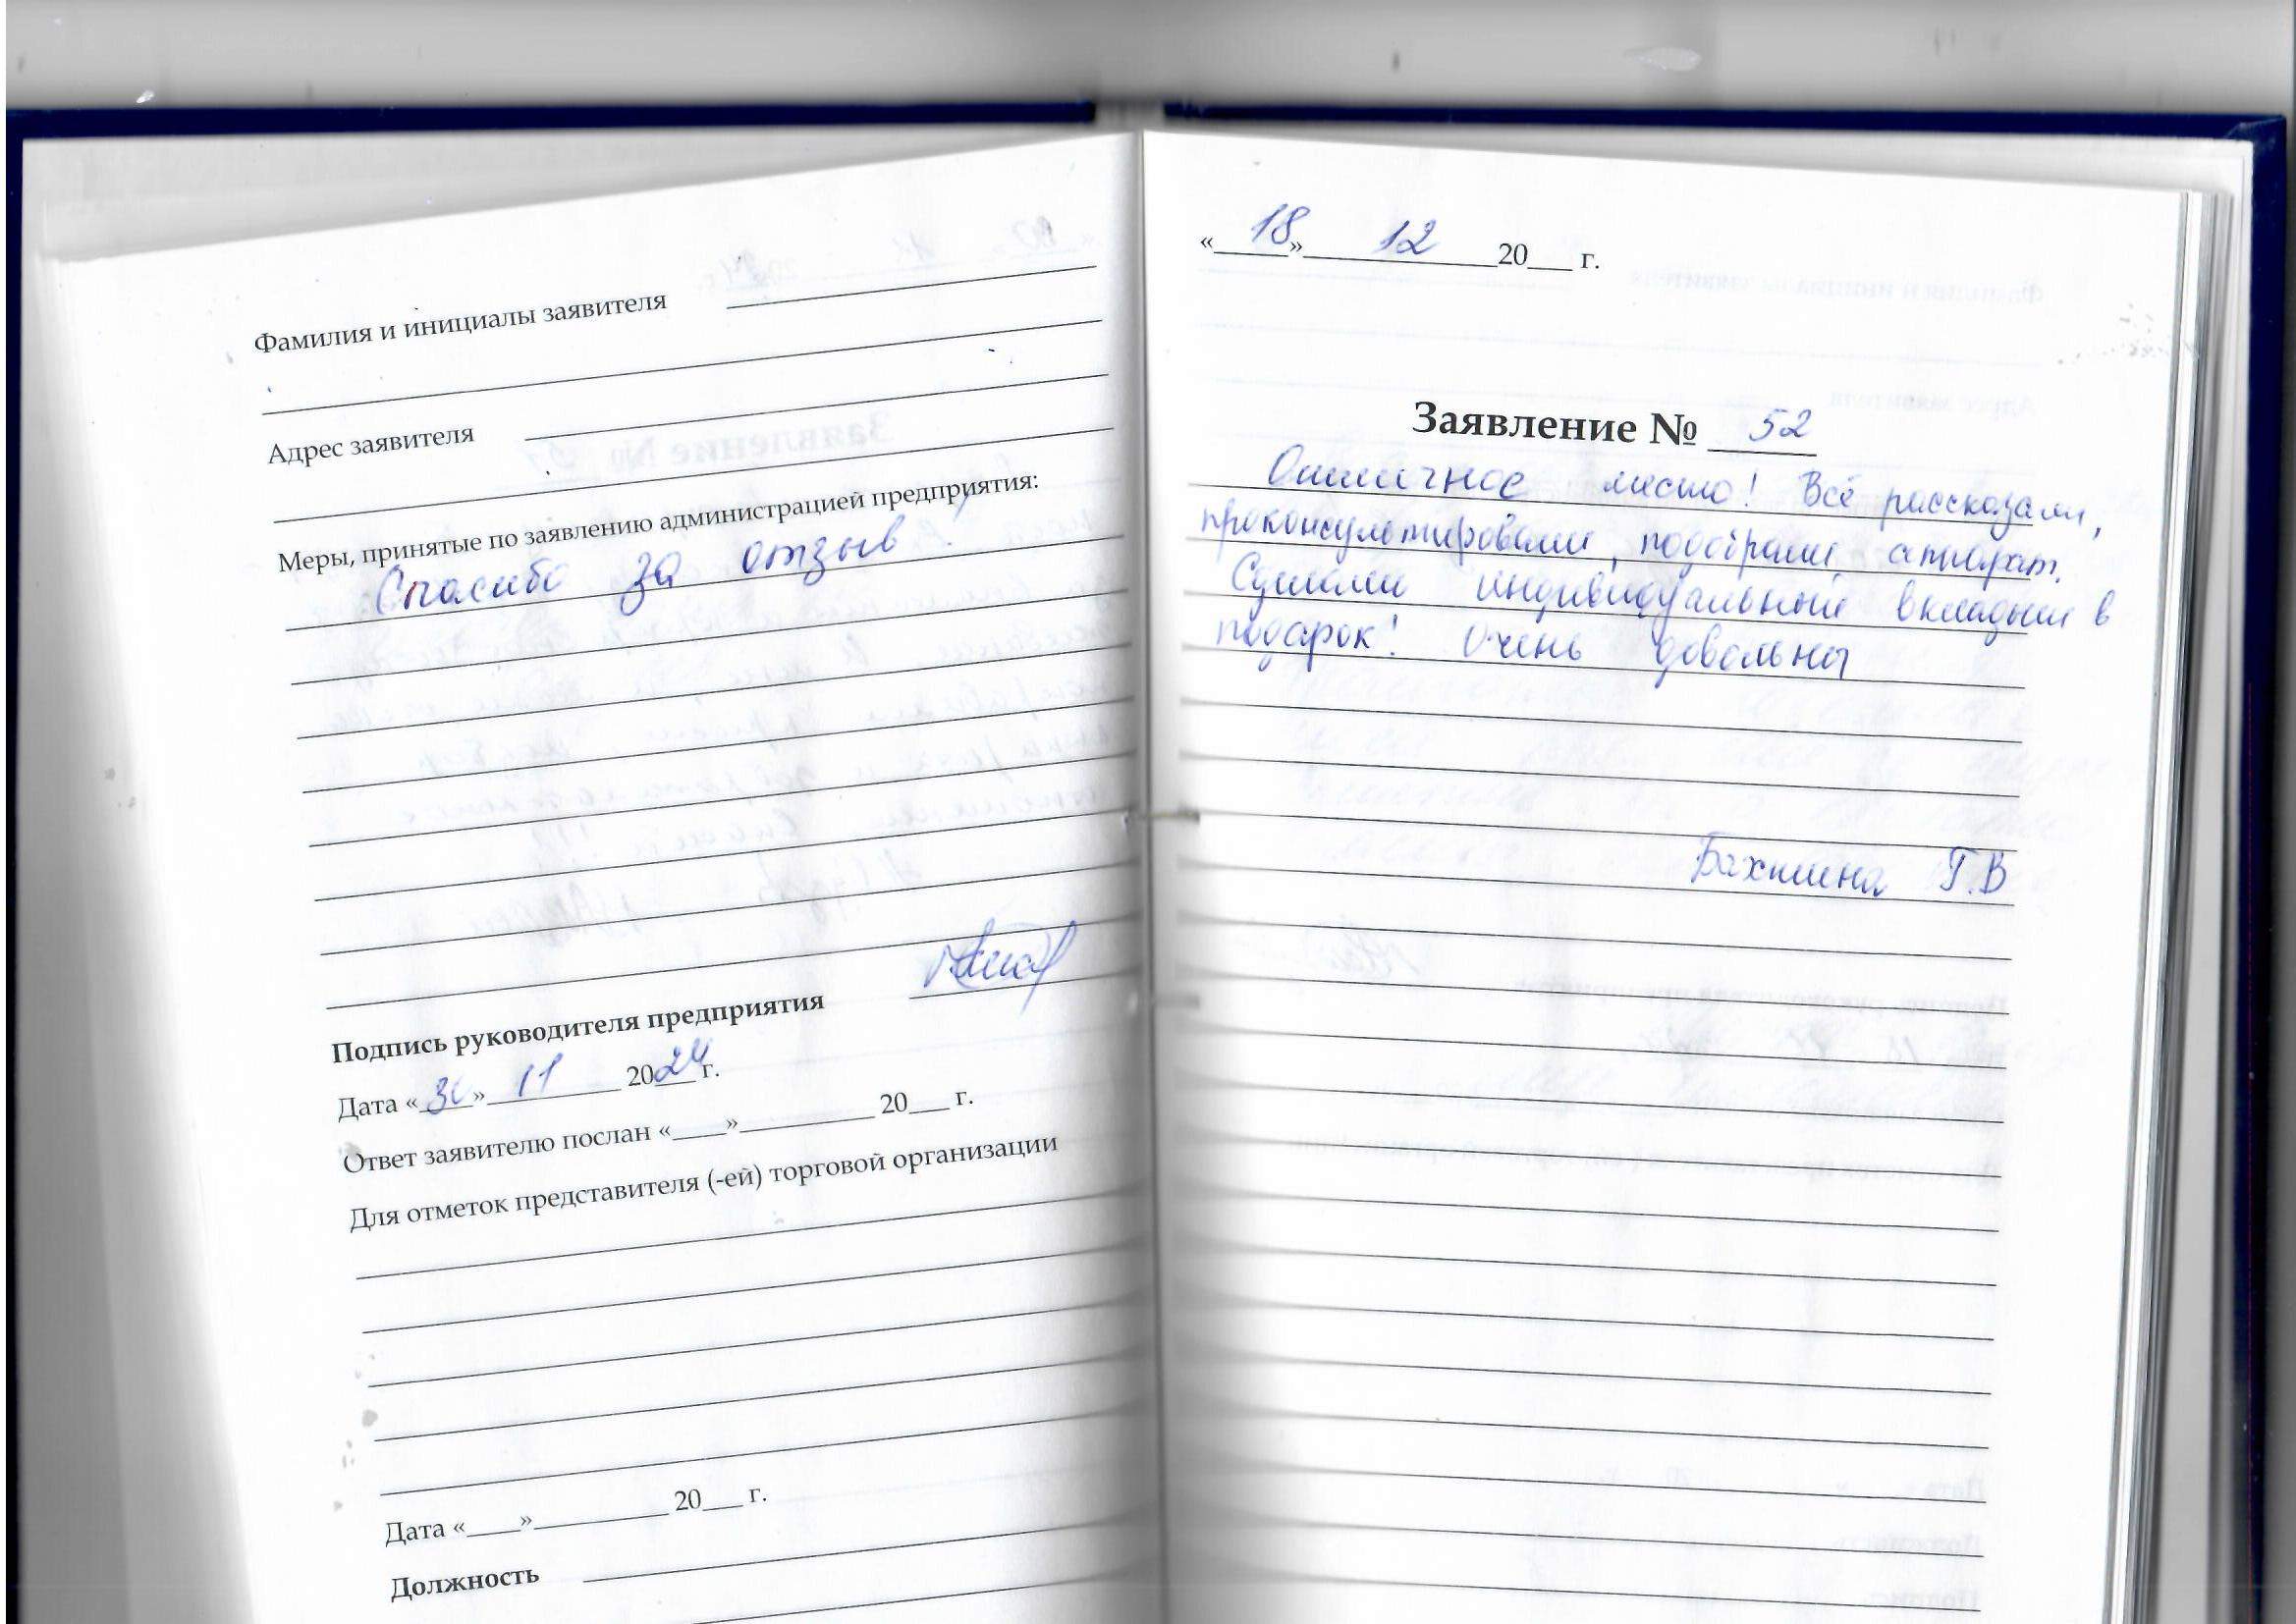 Фамилия и инициалы заявителя
Адрес заявителя
Меры, принятые по заявлению администрацией предприятия:
Спасибо за отзыв!
Подпись руководителя предприятия
Дата «30» 11 2024 г.
Ответ заявителю послан «____»__________ 20___ г.
Для отметок представителя (-ей) торговой организации
Дата «____»__________ 20___ г.
Должность
«18» 12 20___ г.
Заявление № 52
Отличное место! Всё рассказали,
проконсультировали, подобрали аппарат.
Сделали индивидуальный вкладыш в
подарок! Очень довольны
Г.В